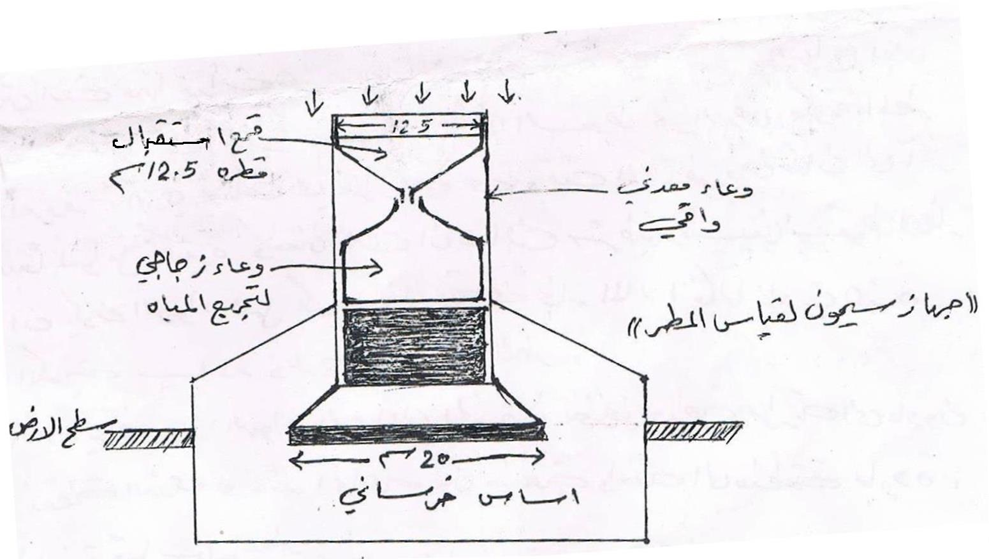 12.5
قمع استقبال
قطره 12.5 سم
وعاء معدني
واقي
وعاء زجاجي
لتجميع المياه
«جهاز سيمون لقياس المطر»
سطح الارض
20 سم
اساس خرساني